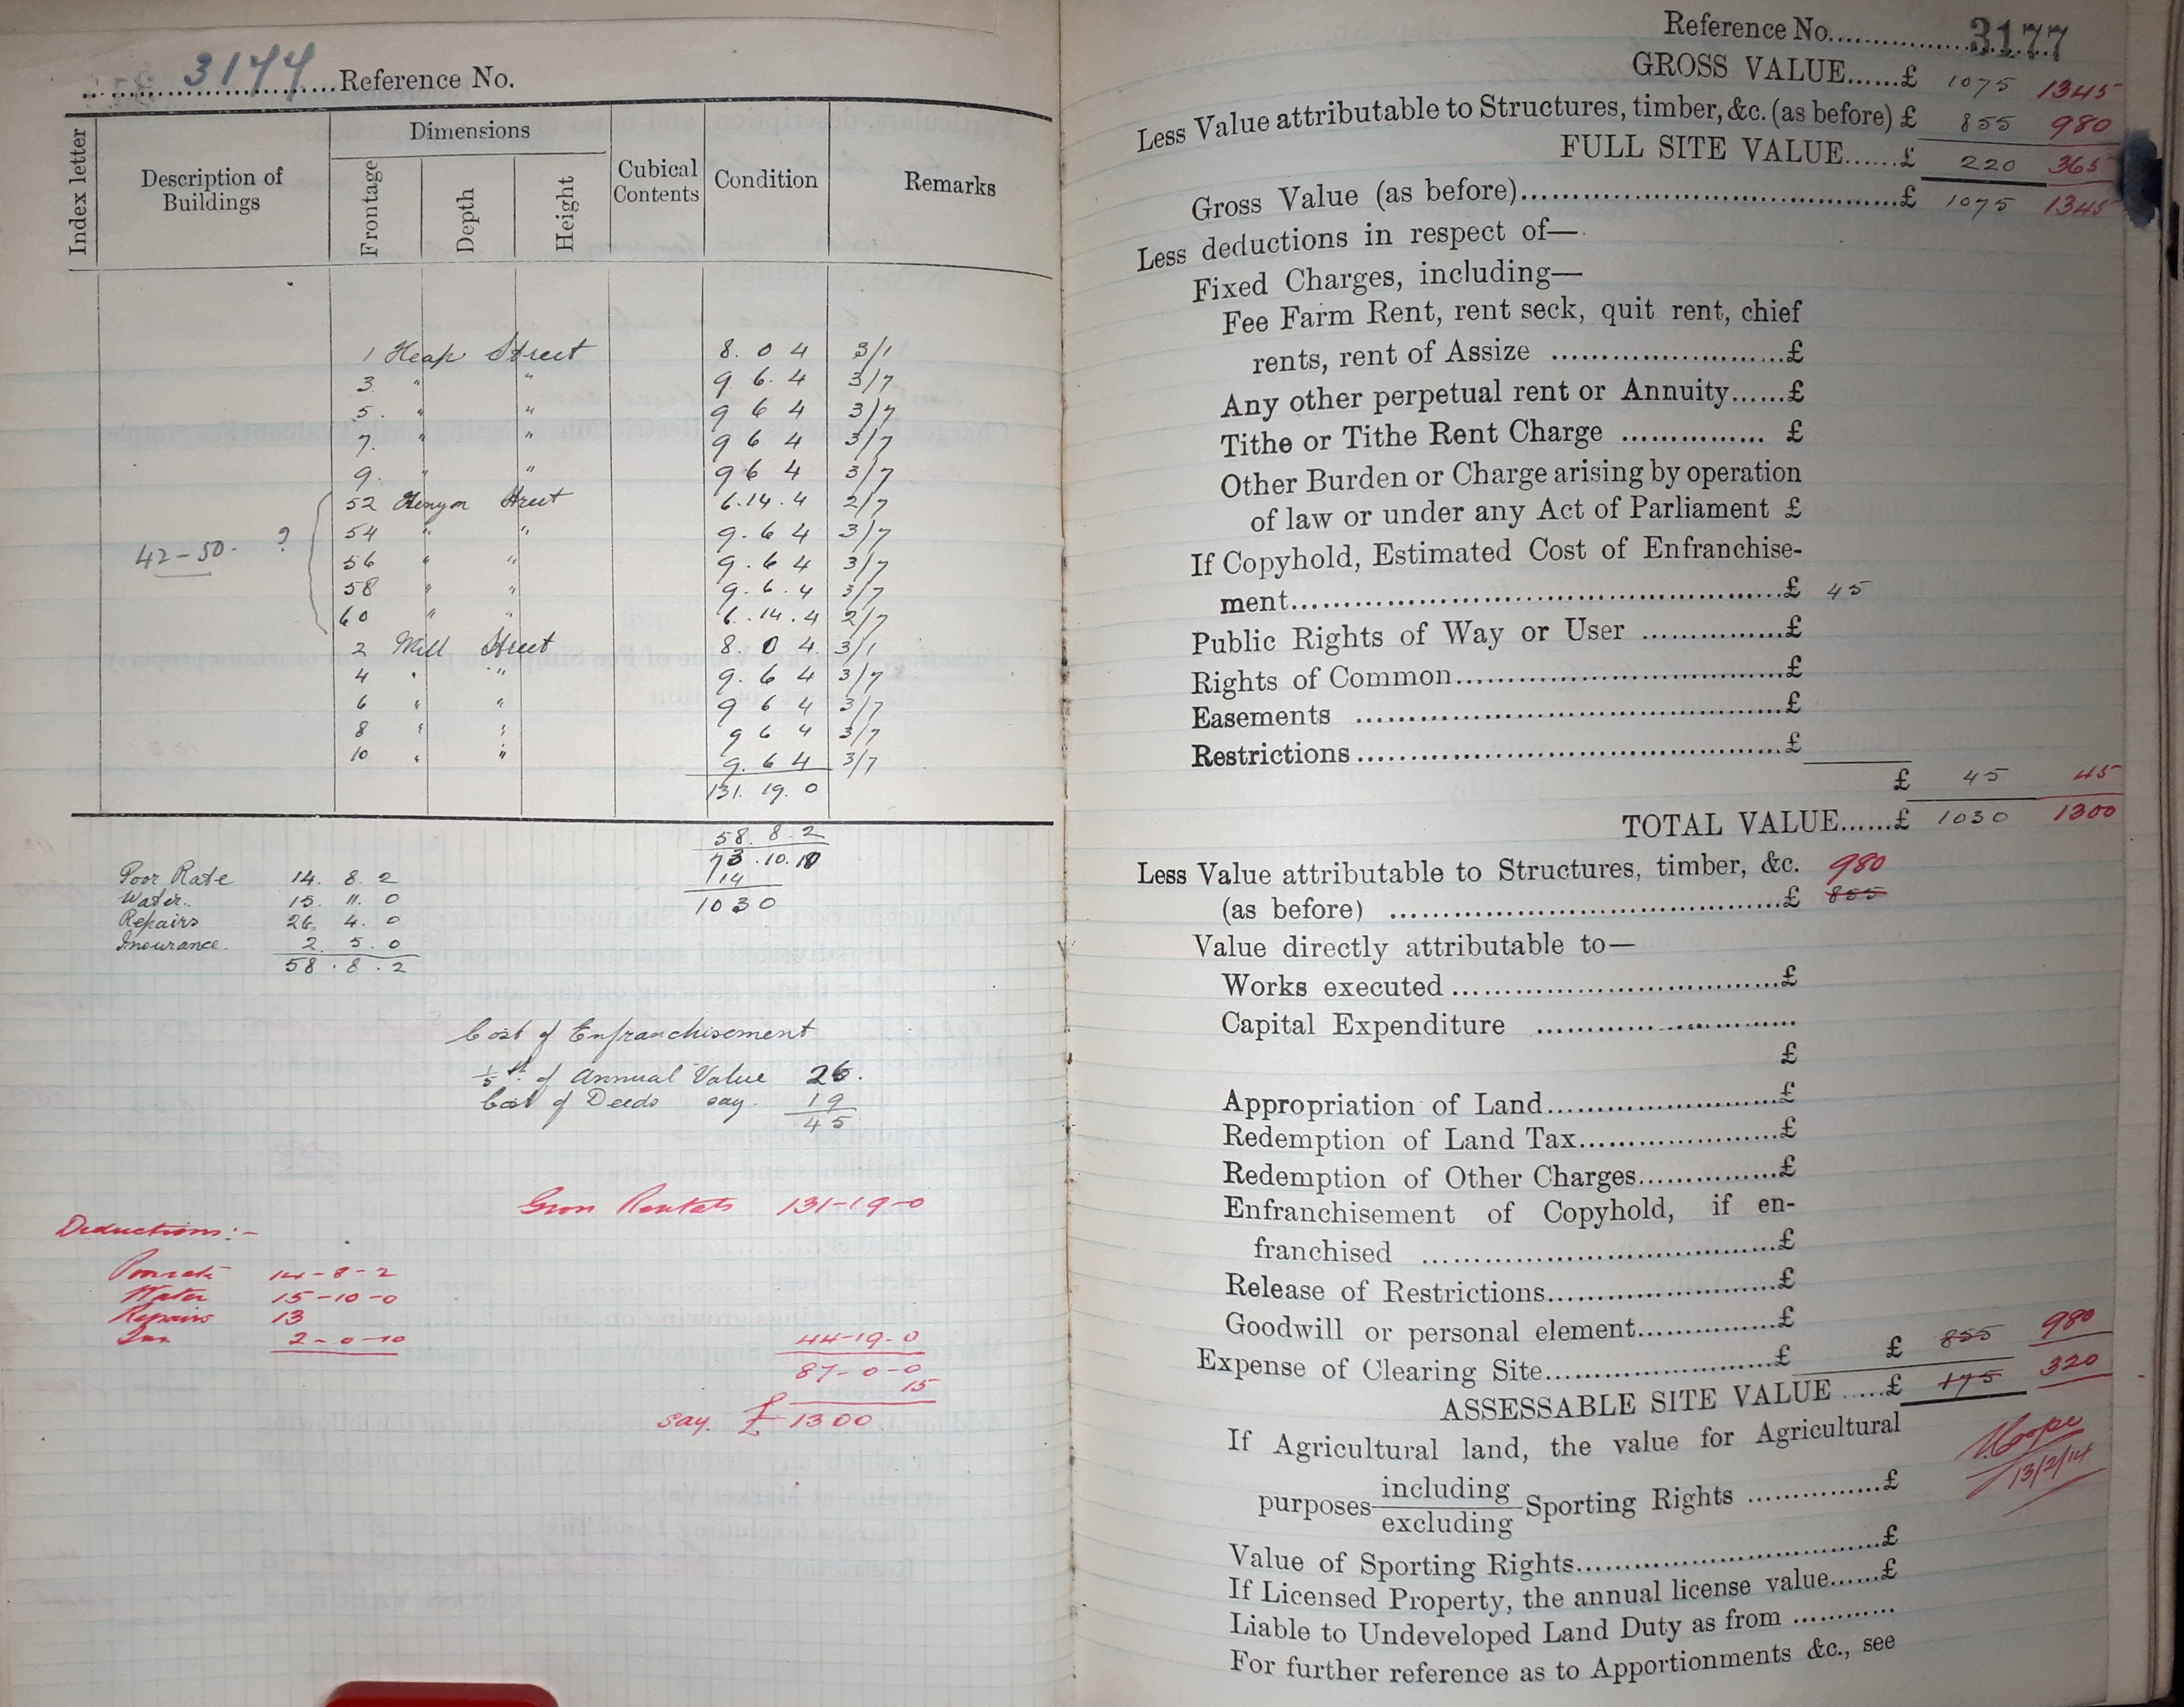 3177 Reference No.
Index letter
Description of Buildings
Dimensions
Frontage
Depth
Height
Cubical Contents
Condition
Remarks
1 Heap Street 8. 0 4 3/1
3 " " 9 6. 4 3/7
5. " " 9 6 4 3/7
7. " " 9 6 4 3/7
9. " " 9 6 4 3/7
52 Kenyon Street 6.14.4 2/7
54 " " 9.6 4 3/7
42-50. ?
56 " " 9.6 4 3/7
58 " " 9.6.4 3/7
60 " " 6.14.4 2/7
2 Mill Street 8. 0 4. 3/1
4 " " 9. 6 4 3/7
6 " " 9 6 4 3/7
8 " " 9 6 4 3/7
10 " " 9. 6 4 3/7
131. 19. 0
58. 8. 2
73.10.10
14
1030
Poor Rate 14. 8. 2
Water.. 15. 11. 0
Repairs 26. 4. 0
Insurance. 2. 5. 0
58. 8. 2
Cost of Enfranchisement
1/5 th of Annual Value 26.
Cost of Deeds say 19
45
Gross Rentals 131-19-0
Deductions:-
Poor rate 14-8-2
Water 15-10-0
Repairs 13
Ins 2-0-10 44-19-0
87-0-0
15
say. £ 1300
Reference No. 3177
GROSS VALUE......£ 1075 1345
Less Value attributable to Structures, timber, &c. (as before) £ 855 980
FULL SITE VALUE......£ 220 365
Gross Value (as before)......£ 1075 1345
Less deductions in respect of—
Fixed Charges, including—
Fee Farm Rent, rent seck, quit rent, chief
rents, rent of Assize ......£
Any other perpetual rent or Annuity......£
Tithe or Tithe Rent Charge ...... £
Other Burden or Charge arising by operation
of law or under any Act of Parliament £
If Copyhold, Estimated Cost of Enfranchise-
ment......£ 45
Public Rights of Way or User ......£
Rights of Common......£
Easements ......£
Restrictions......£
£ 45 45
TOTAL VALUE......£ 1030 1300
Less Value attributable to Structures, timber, &c. 980
(as before) ......£ 855
Value directly attributable to—
Works executed ......£
Capital Expenditure ......
£
Appropriation of Land......£
Redemption of Land Tax......£
Redemption of Other Charges......£
Enfranchisement of Copyhold, if en-
franchised ......£
Release of Restrictions......£
Goodwill or personal element......£
Expense of Clearing Site......£ £ 855 980
ASSESSABLE SITE VALUE......£ 175 320
If Agricultural land, the value for Agricultural
purposes including
excluding Sporting Rights ......£
13/2/14
Value of Sporting Rights......£
If Licensed Property, the annual license value......£
Liable to Undeveloped Land Duty as from ......
For further reference as to Apportionments &c., see